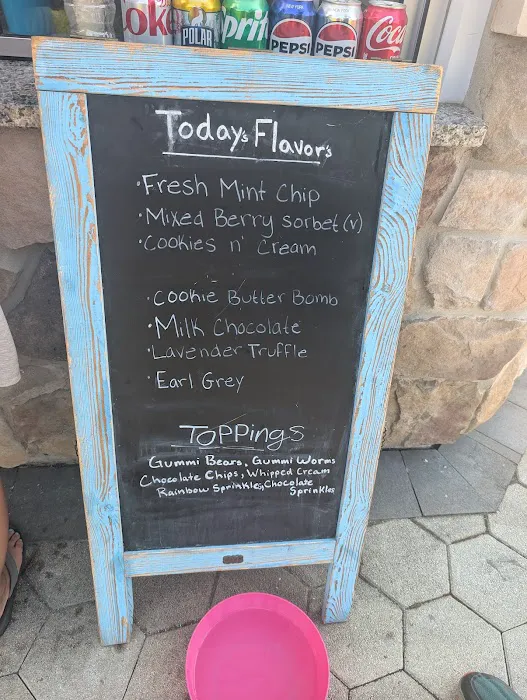 oke
POLAR
sprit
PEPSI
PEPSI
Coca
Today's Flavors
·Fresh Mint Chip
·Mixed Berry Sorbet (v)
·Cookies n' Cream
·Cookie Butter Bomb
·Milk Chocolate
·Lavender Truffle
·Earl Grey
Toppings
Gummi Bears, Gummi Worms
Chocolate Chips, Whipped Cream
Rainbow Sprinkles, Chocolate
Sprinkles